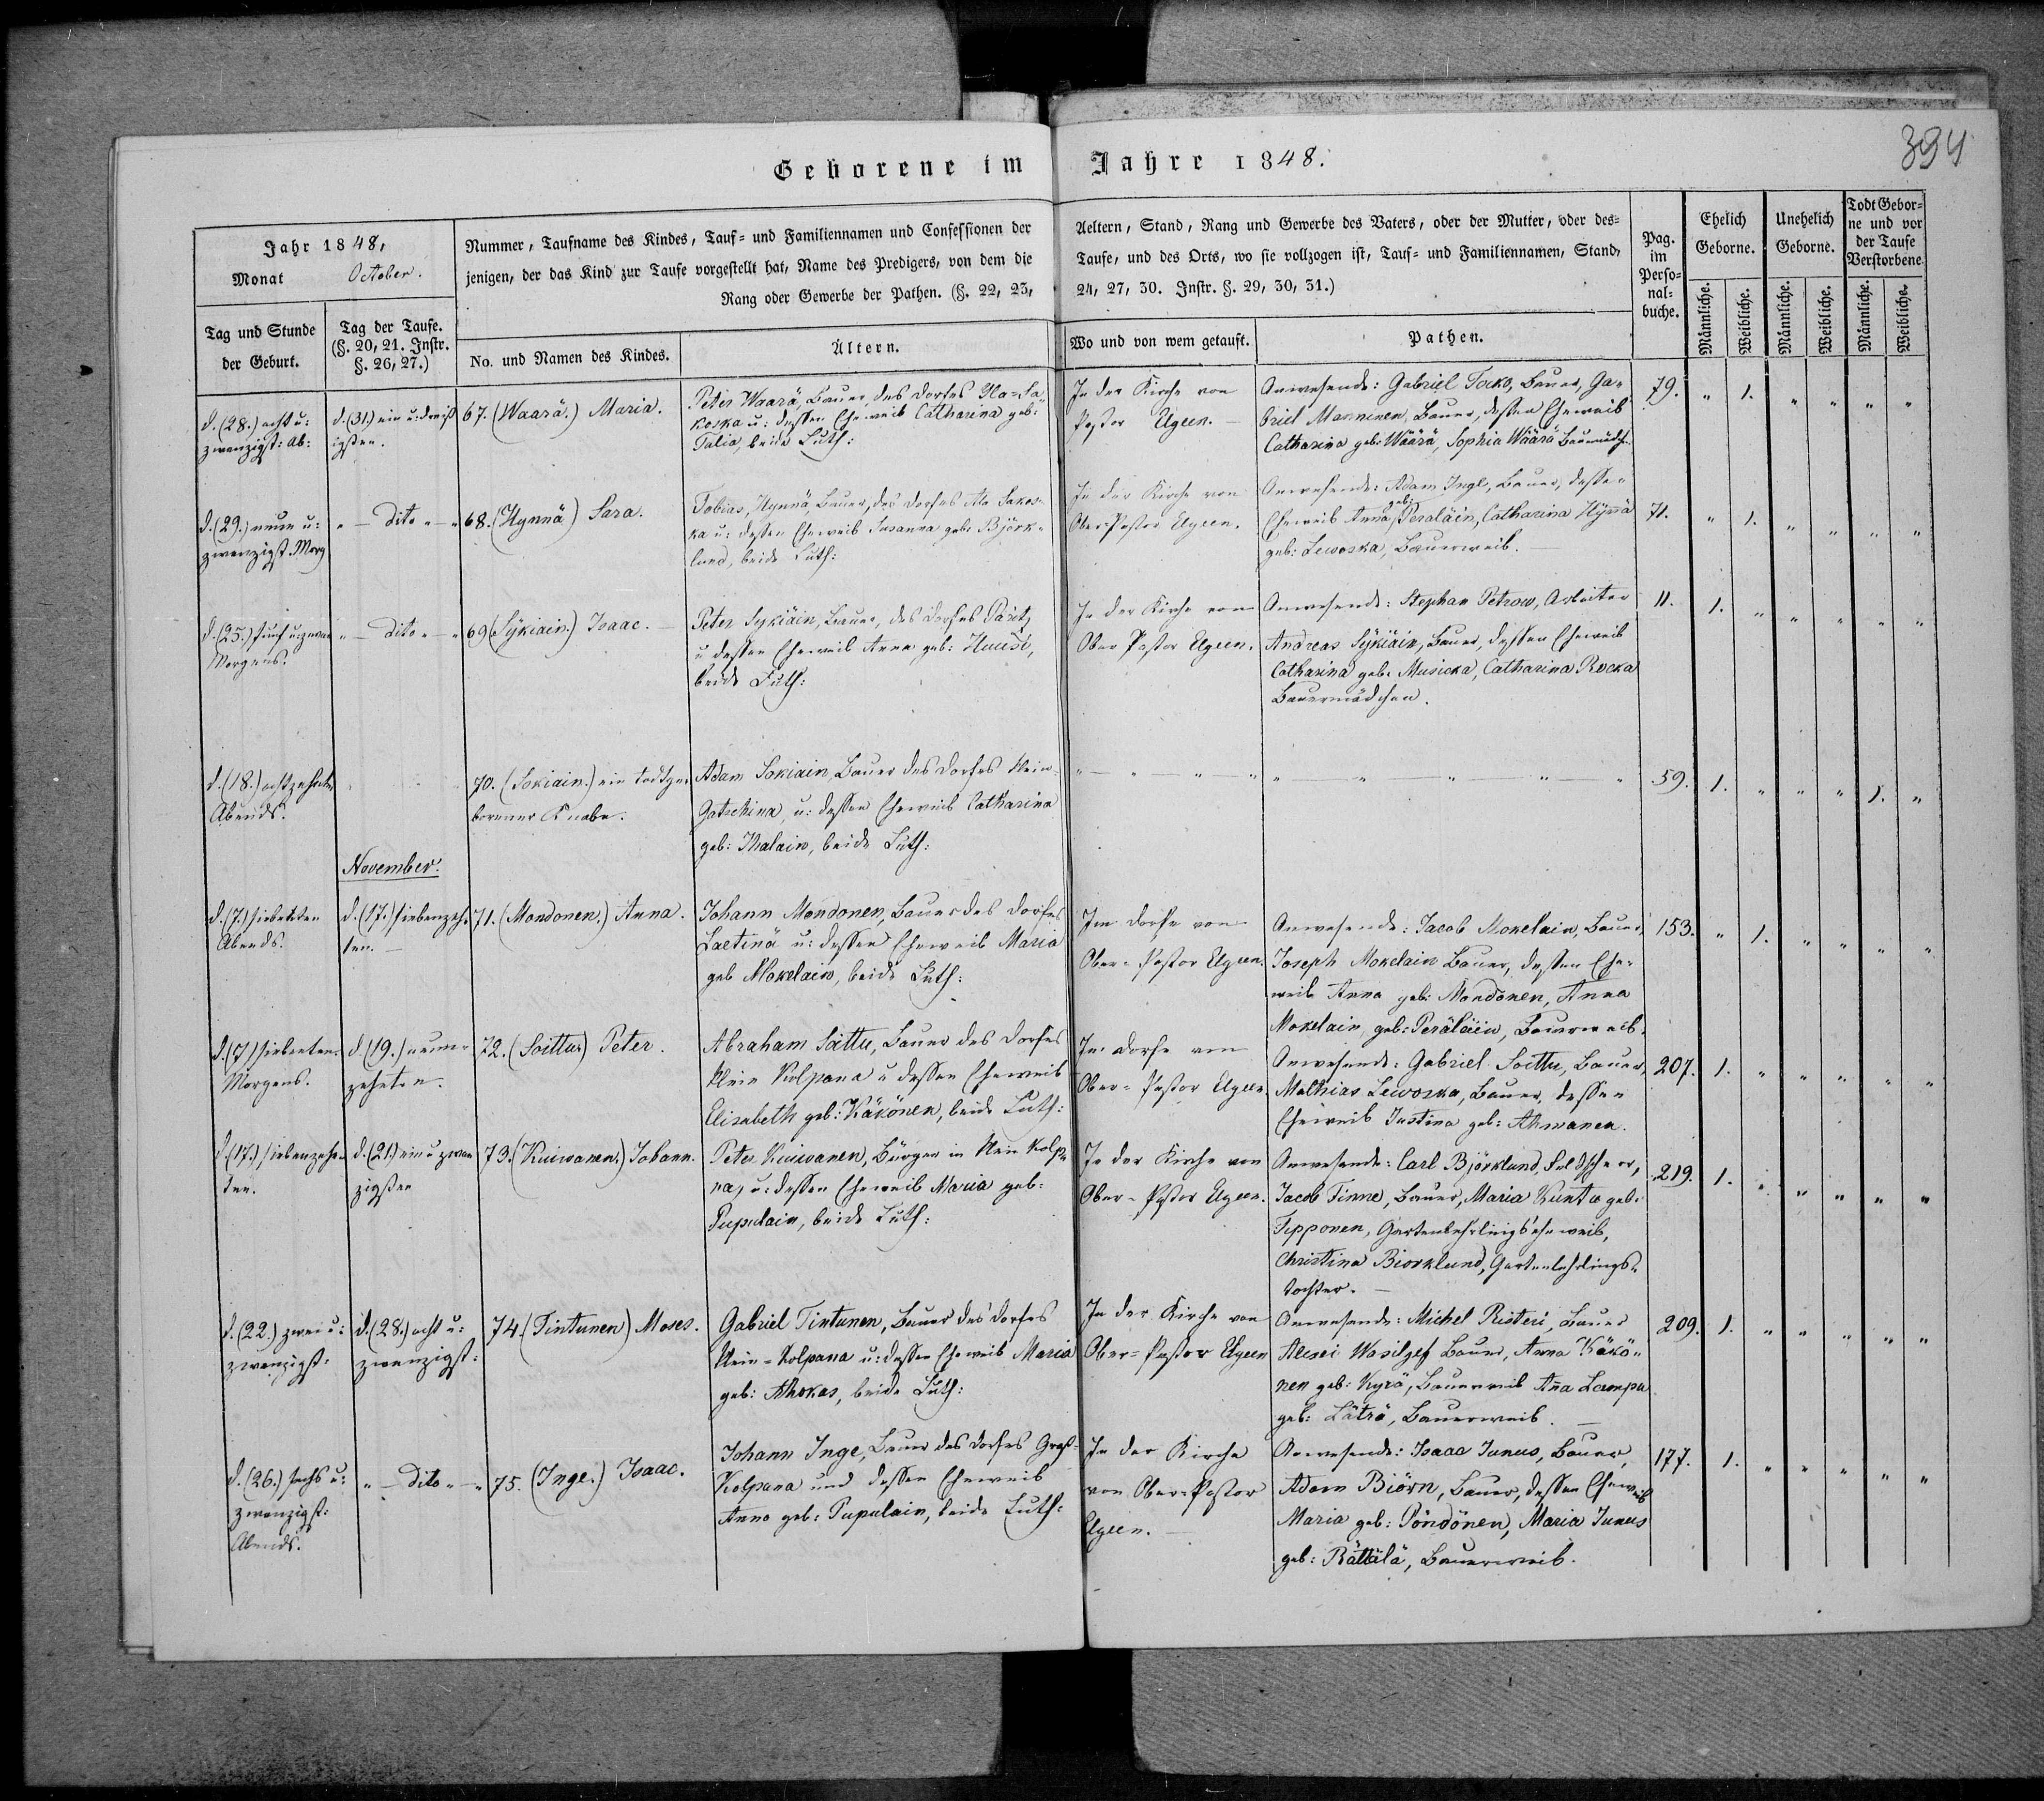 394
Geborene im Jahre 1848.
Jahr 1848,
Monat October.
Nummer, Taufname des Kindes, Tauf= und Familiennamen und Confessionen der
jenigen, der das Kind zur Taufe vorgestellt hat, Name des Predigers, von dem die
Rang oder Gewerbe der Pathen. (§. 22, 23,
Aeltern, Stand, Rang und Gewerbe des Vaters, oder der Mutter, oder des=
Taufe, und des Orts, wo sie vollzogen ist, Tauf= und Familiennamen, Stand,
24, 27, 30. Instr. §. 29, 30, 31.)
Pag.
im
Perso=
nal=
buche.
Ehelich
Geborne.
Unehelich
Geborne.
Todt Gebor=
ne und vor
der Taufe
Verstorbene
Tag und Stunde
der Geburt.
Tag der Taufe.
(§. 20, 21. Instr.
§. 26, 27.)
No. und Namen des Kindes.
Ältern.
Wo und von wem getauft.
Pathen.
Männliche.
Weibliche.
Männliche.
Weibliche.
Männliche.
Weibliche.
d. (28.) acht u:
zwanzigst: Ab:
d. (31.) ein u: dreiß
igsten.
67. (Waarä.) Maria.
Peter Waarä, Bauer, des Dorfes Yla=Sa
koska u: dessen Eheweib Catharina geb:
Talia, beide Luth:
In der Kirche von
Pastor Elgeen. —
Anwesende: Gabriel Tocko, Bauer, Ga=
briel Manninen, Bauer, dessen Eheweib
Catharina geb: Wäärä, Sophia Wäärä Bauermädch.
79. " 1. " " " "
d. (29.) neun u:
zwanzigst. Morg
" — dito " — "
68. (Hynnä) Sara.
Tobias Hynnä, Bauer, des Dorfes Ala Sakos=
ka u: dessen Eheweib Susanna geb: Björk=
lund, beide Luth:
In der Kirche von
Ober=Pastor Elgeen.
Anwesende: Adam Inge, Bauer, dessen
Eheweib Anna geb: Peraläin, Catharina Hyn̄ä
geb: Lewoska, Bauerweib. —
71. " 1. " " " "
d. (25.) fünf u: zwan
Morgens.
" — dito " — "
69 (Sÿkiain.) Isaac. —
Peter Sykiäin, Bauer, des Dorfes Paritz
u dessen Eheweib Anna geb: Huusi,
beide Luth:
In der Kirche vom
Ober Pastor Elgeen.
Anwesende: Stephan Petrow, Arbeiter
Andreas Sÿkiäin, Bauer, dessen Eheweib
Catharina geb: Musicka, Catharina Rocka
Bauermädchen.
11. 1. " " " " "
d. (18.) achtzehnten
Abends.
70. (Sokiain.) ein todtge=
borener Knabe.
Adam Sokiain, Bauer des Dorfes Klein=
Gatschina, u: dessen Eheweib Catharina
geb: Ihalain, beide Luth:
59. 1. " " " 1. "
November.
d. (7.) siebenten
Abends.
d. (17.) siebenzehn
ten. —
71. (Mondonen.) Anna.
Johann Mondonen, Bauer des Dorfes
Laetinä u: dessen Eheweib Maria
geb Mokelain, beide Luth:
Im Dorfe von
Ober=Pastor Elgeen.
Anwesende: Jacob Mokelain, Bauer,
Joseph Mokelain Bauer, dessen Ehe=
weib Anna geb: Mondonen, Anna
Mokelain geb: Peräläin, Bauerweib.
153. " 1. " " " "
d. (7) siebenten
Morgens.
d. (19.) neun=
zehnten.
72. (Soittu) Peter.
Abraham Soittu, Bauer des Dorfes
Klein Kolpana u dessen Eheweib
Elisabeth geb: Käkönen, beide Luth:
Im Dorfe von
Ober=Pastor Elgeen.
Anwesende: Gabriel Soittu, Bauer,
Mathias Lewoska, Bauer, dessen
Eheweib Justina geb: Ahmanen.
207. 1. " " " " "
d. (17.) siebenzehn
ten.
d. (21.) ein u zwan
zigsten
73. (Kuiwanen.) Johann.
Peter Kuiwanen, Bürger in Klein Kolpa
na, u: dessen Eheweib Maria geb:
Pupulain, beide Luth:
In der Kirche von
Ober=Pastor Elgeen.
Anwesende: Carl Björklund, Feldscheer,
Jacob Tinne, Bauer, Maria Kuntu geb:
Tepponen, Gartenlehrlings'eheweib,
Christina Biorklund, Gartenlehrlings=
tochter. —
219. 1. " " " " "
d. (22.) zwei u:
zwanzigst:
d. (28.) acht u:
zwanzigst:
74. (Tintunen) Moses.
Gabriel Tintunen, Bauer des Dorfes
Klein=Kolpana u: dessen Eheweib Maria
geb: Ahokas, beide Luth:
In der Kirche von
Ober=Pastor Elgeen
Anwesende: Michel Risteri, Bauer
Alexei Wasiljef Bauer, Anna Käkö=
nen geb: Kyrö, Bauerweib An̄a Lampu
geb: Lätrö, Bauerweib. —
209. 1. " " " " "
d. (26.) sechs u:
zwanzigst:
Abends.
" — dito " — "
75. (Inge.) Isaac.
Johann Inge, Bauer des Dorfes Groß=
Kolpana und dessen Eheweib
Anna geb: Pupulain, beide Luth:
In der Kirche
von Ober=Pastor
Elgeen. —
Anwesende: Isaac Junus, Bauer,
Adam Biörn, Bauer, dessen Eheweib
Maria geb: Pöndönen, Maria Junus
geb: Rättälä, Bauerweib.
177. 1. " " " " "